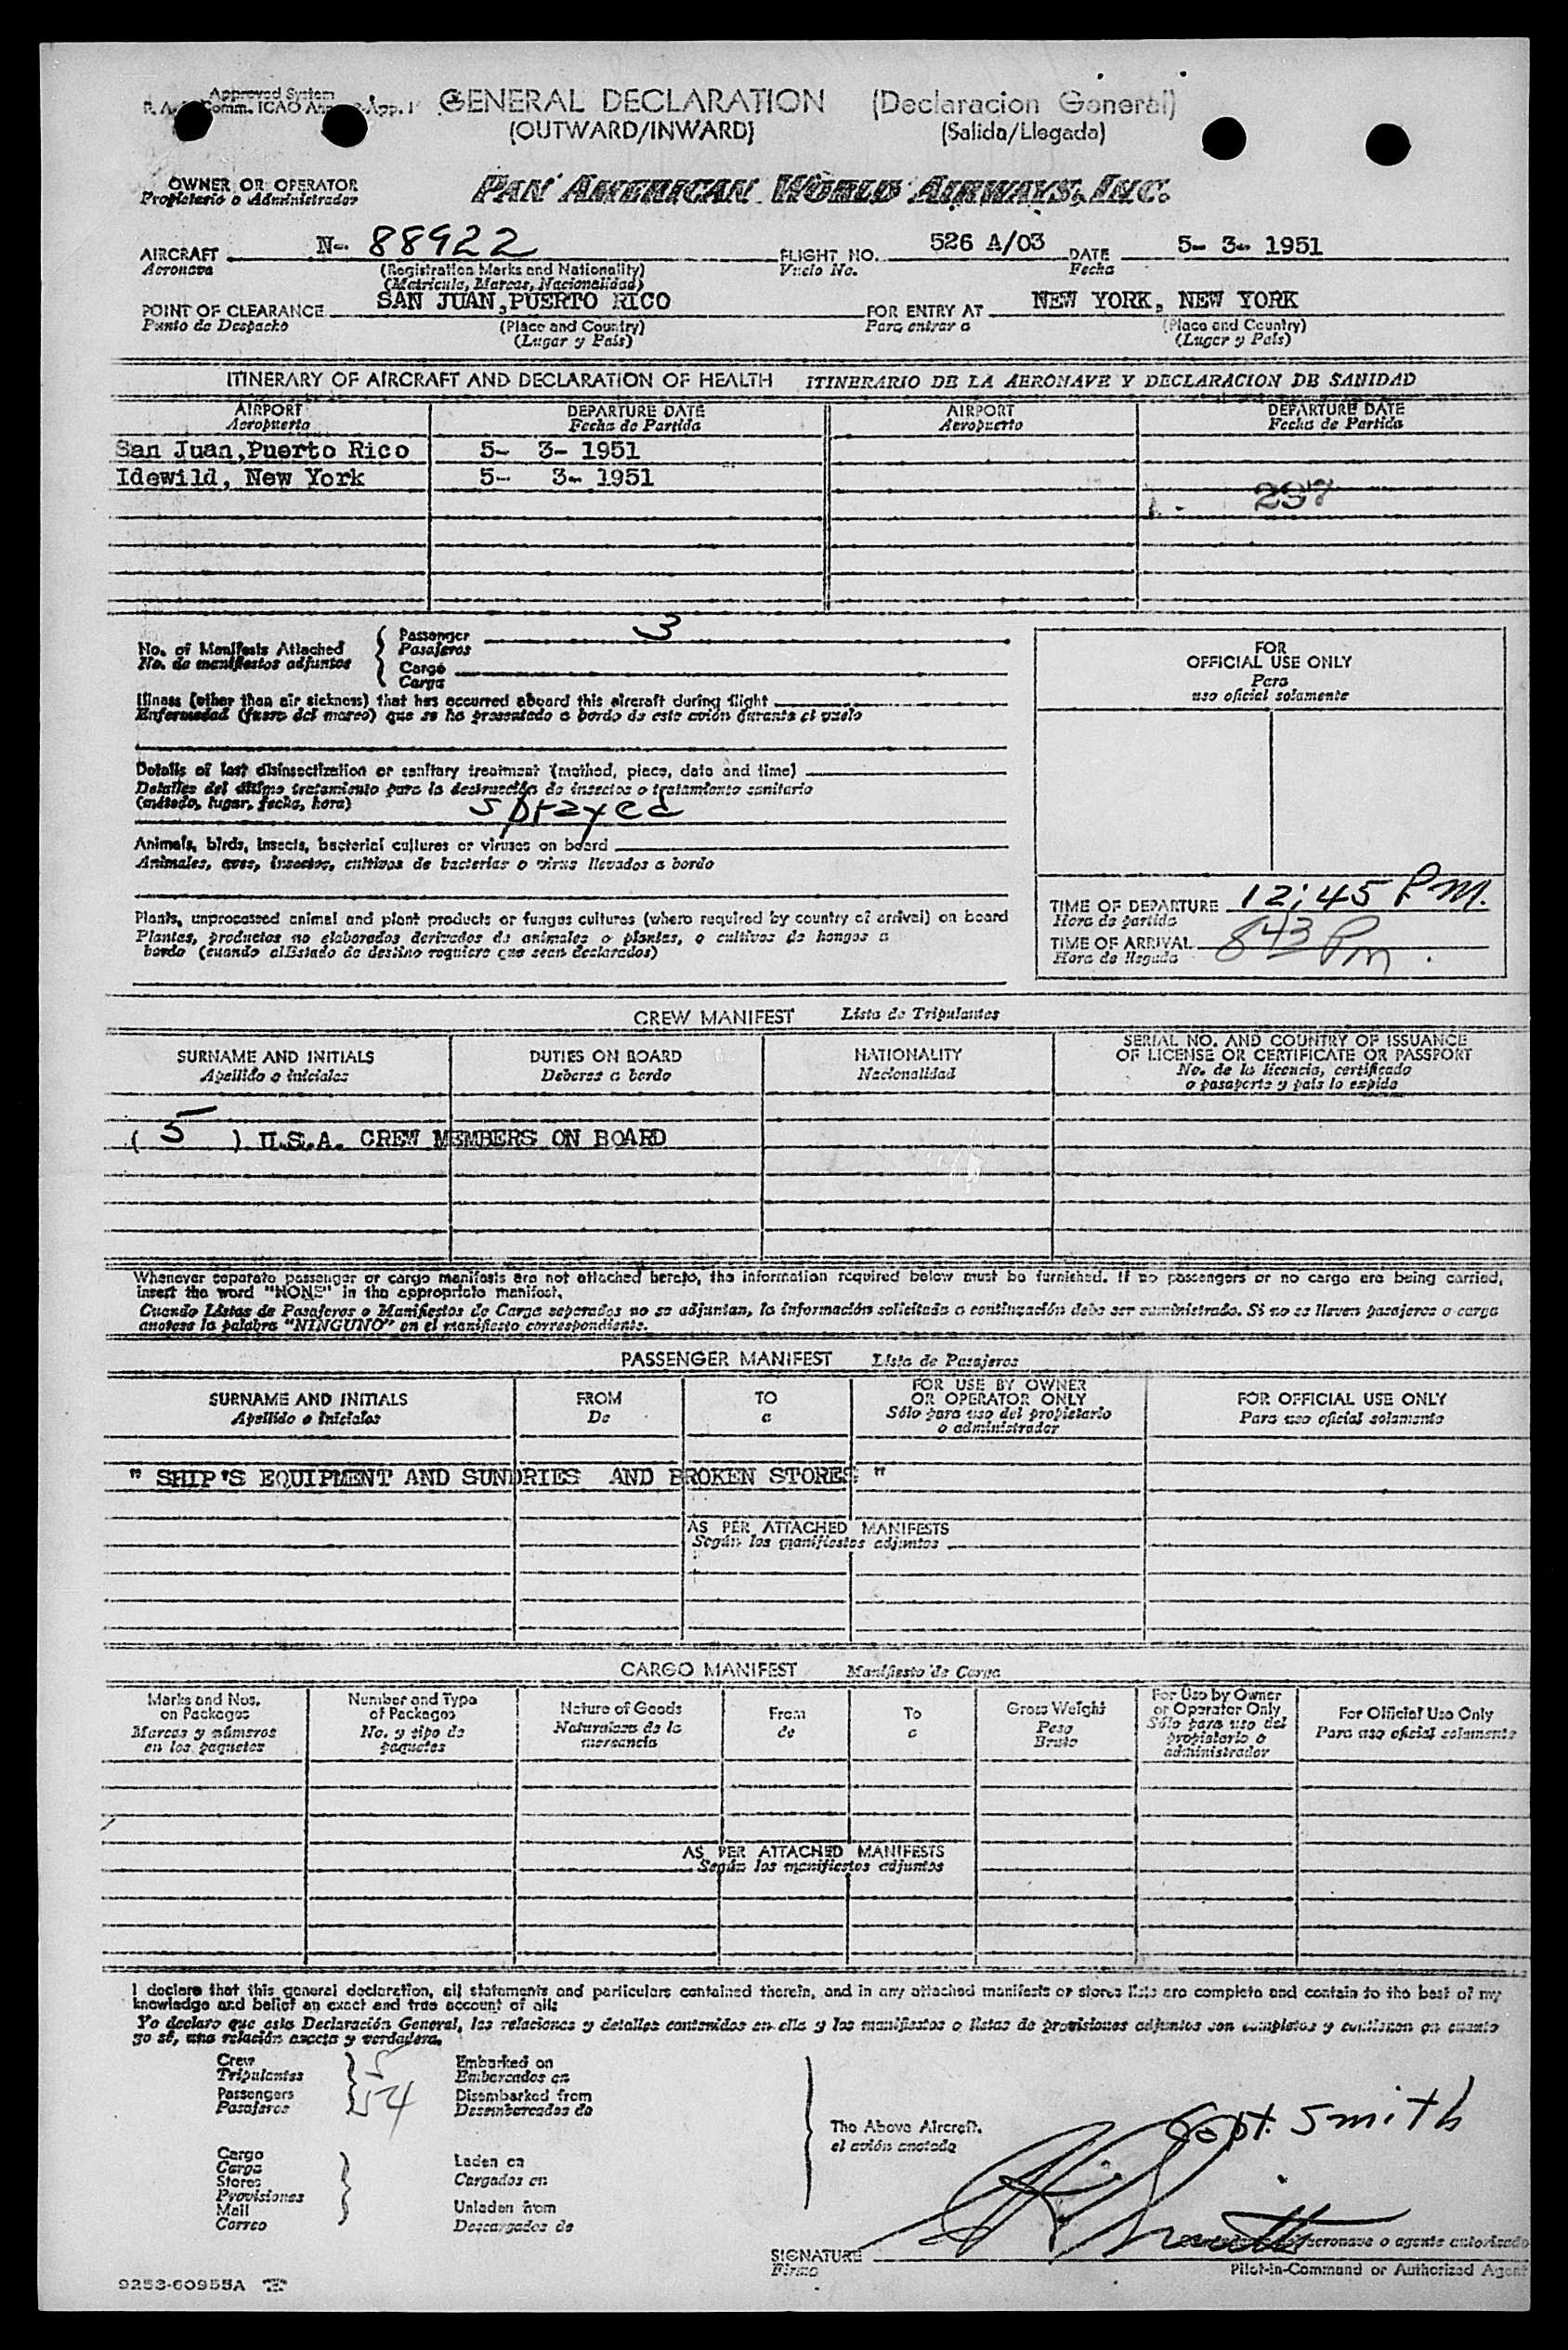 Approved System
GENERAL DECLARATION (Declaracion General)
(OUTWARD/INWARD) (Salida/Llegada)
OWNER OR OPERATOR PAN AMERICAN WORLD AIRWAYS, INC.
Propietario o Administrador
AIRCRAFT N- 88922 FLIGHT NO. 526 A/03 DATE 5- 3- 1951
Aeronave (Registration Marks and Nationality) Vuelo No. Fecha
(Matricula, Marcas, Nacionalidad)
POINT OF CLEARANCE SAN JUAN,PUERTO RICO FOR ENTRY AT NEW YORK, NEW YORK
Punto de Despacho (Place and Country) Para entrar a (Place and Country)
(Lugar y País) (Lugar y País)
ITINERARY OF AIRCRAFT AND DECLARATION OF HEALTH ITINERARIO DE LA AERONAVE Y DECLARACION DE SANIDAD
AIRPORT DEPARTURE DATE AIRPORT DEPARTURE DATE
Aeropuerto Fecha de Partida Aeropuerto Fecha de Partida
San Juan,Puerto Rico 5- 3- 1951
Idewild, New York 5- 3- 1951
No. of Manifests Attached Passenger 3
No. de manifiestos adjuntos Pasajeros
Cargo
Carga
Illness (other than air sickness) that has occurred aboard this aircraft during flight
Enfermedad (fuera del mareo) que se ha presentado a bordo de este avión durante el vuelo
Details of last disinsectization or sanitary treatment (method, place, date and time)
Detalles del último tratamiento para la destrucción de insectos o tratamiento sanitario
(método, lugar, fecha, hora) sprayed
Animals, birds, insects, bacterial cultures or viruses on board
Animales, aves, insectos, cultivos de bacterias o virus llevados a bordo
Plants, unprocessed animal and plant products or fungus cultures (where required by country of arrival) on board
Plantas, productos no elaborados derivados de animales o plantas, o cultivos de hongos a
bordo (cuando el Estado de destino requiere que sean declarados)
FOR
OFFICIAL USE ONLY
Para
uso oficial solamente
TIME OF DEPARTURE 12:45 P.M.
Hora de partida
TIME OF ARRIVAL 843 Pm
Hora de llegada
CREW MANIFEST Lista de Tripulantes
SURNAME AND INITIALS DUTIES ON BOARD NATIONALITY SERIAL NO. AND COUNTRY OF ISSUANCE
OF LICENSE OR CERTIFICATE OR PASSPORT
Apellido e iniciales Deberes a bordo Nacionalidad No. de la licencia, certificado
o pasaporte y país lo expide
( 5 ) U.S.A. CREW MEMBERS ON BOARD
Whenever separate passenger or cargo manifests are not attached hereto, the information required below must be furnished. If no passengers or no cargo are being carried,
insert the word "NONE" in the appropriate manifest.
Cuando Listas de Pasajeros o Manifiestos de Carga separados no se adjuntan, la información solicitada a continuación debe ser suministrada. Si no se llevan pasajeros o carga
anotese la palabra "NINGUNO" en el manifiesto correspondiente.
PASSENGER MANIFEST Lista de Pasajeros
SURNAME AND INITIALS FROM TO FOR USE BY OWNER FOR OFFICIAL USE ONLY
OR OPERATOR ONLY
Apellido e iniciales De a Sólo para uso del propietario Para uso oficial solamente
o administrador
" SHIP'S EQUIPMENT AND SUNDRIES AND BROKEN STORES "
AS PER ATTACHED MANIFESTS
Según los manifiestos adjuntos
CARGO MANIFEST Manifiesto de Carga
Marks and Nos. Number and Type Nature of Goods From To Gross Weight For Use by Owner For Official Use Only
on Packages of Packages or Operator Only
Marcas y números No. y tipo de Naturaleza de la de a Peso Sólo para uso del Para uso oficial solamente
en los paquetes paquetes mercancía Bruto propietario o
administrador
AS PER ATTACHED MANIFESTS
Según los manifiestos adjuntos
I declare that this general declaration, all statements and particulars contained therein, and in any attached manifests or stores lists are complete and contain to the best of my
knowledge and belief an exact and true account of all:
Yo declaro que esta Declaración General, las relaciones y detalles contenidos en ella y los manifiestos o listas de provisiones adjuntos son completos y contienen en cuanto
yo sé, una relación exacta y verdadera.
Crew 5 Embarked on
Tripulantes Embarcados en
Passengers 54 Disembarked from
Pasajeros Desembarcados de
The Above Aircraft. Capt. Smith
el avión anotado
Cargo Laden on
Carga Cargados en
Stores
Provisiones
Mail Unladen from
Correo Descargados de
SIGNATURE aeronave o agente autorizado
Firma Pilot-in-Command or Authorized Agent
9253-60955A